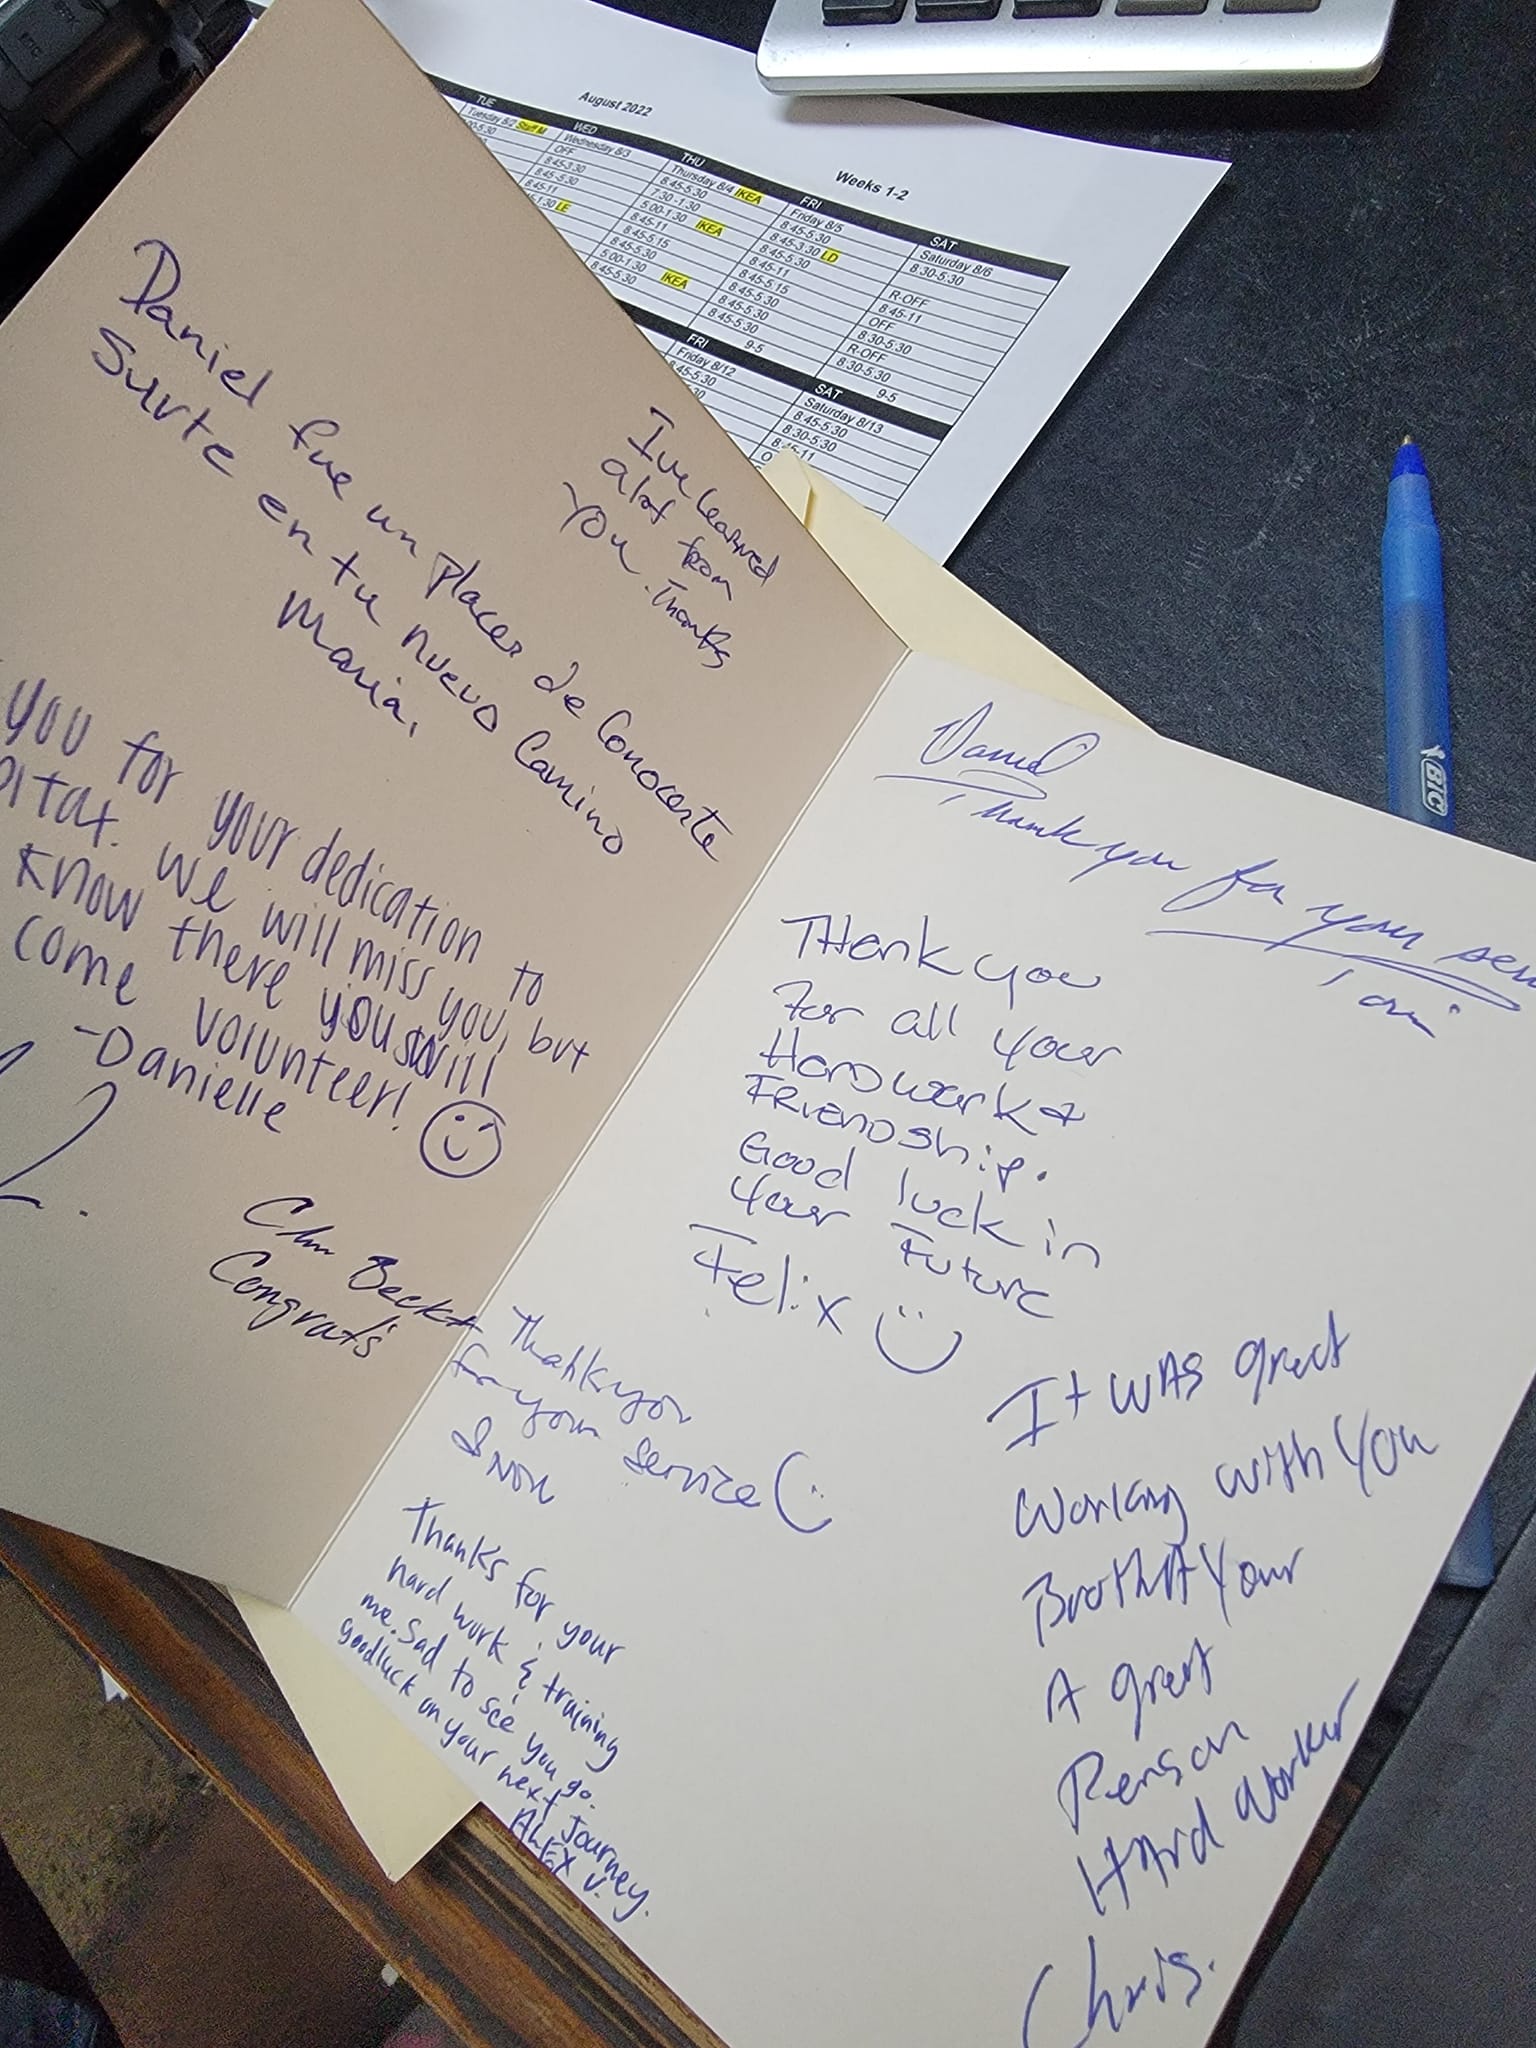 August 2022
Weeks 1-2
TUE
WED
THU
FRI
SAT
Tuesday 8/2 Staff M
Wednesday 8/3
Thursday 8/4 IKEA
Friday 8/5
Saturday 8/6
OFF
8:45-5:30
8:45-5:30
8:30-5:30
8:45-3:30
7:30-1:30
8:45-3:30 LD
8:45-5:30
5:00-1:30 IKEA
8:45-5:30
R-OFF
8:45-11
8:45-11
8:45-11
8:45-11
LE
8:45-5:15
8:45-5:15
OFF
8:45-5:30
8:45-5:30
8:30-5:30
5:00-1:30 IKEA
8:45-5:30
R-OFF
8:45-5:30
8:45-5:30
8:30-5:30
9-5
9-5
FRI
SAT
Friday 8/12
Saturday 8/13
8:45-5:30
8:45-5:30
8:30-5:30
8:45-11
BIC
I've learned
alot from
you. Thanks
Daniel fue un placer de Conocerte
Surte en tu nuevo Camino
Maria,
you for your dedication to
we will miss you, but
know there you will
come volunteer!
-Danielle
Beckt
Congrats
Daniel
Thank you for your
Thank you
For all your
Hard work &
Friendship.
Good luck in
Your Future
Felix
Thank you
for your service
Thanks for your
hard work & training
me. Sad to see you go.
goodluck on your next Journey.
ALEX V.
It was great
Working with You
Your
A great
Person
HArd Worker
Chris.